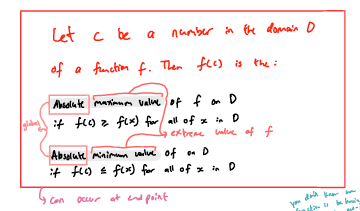 Let c be a number in the domain D
of a function f. Then f(c) is the:
Absolute maximum value of f on D
if f(c) ≥ f(x) for all of x in D
global
extreme value of f
Absolute minimum value of on D
if f(c) ≤ f(x) for all of x in D
can occur at endpoint
you don't know how
function is